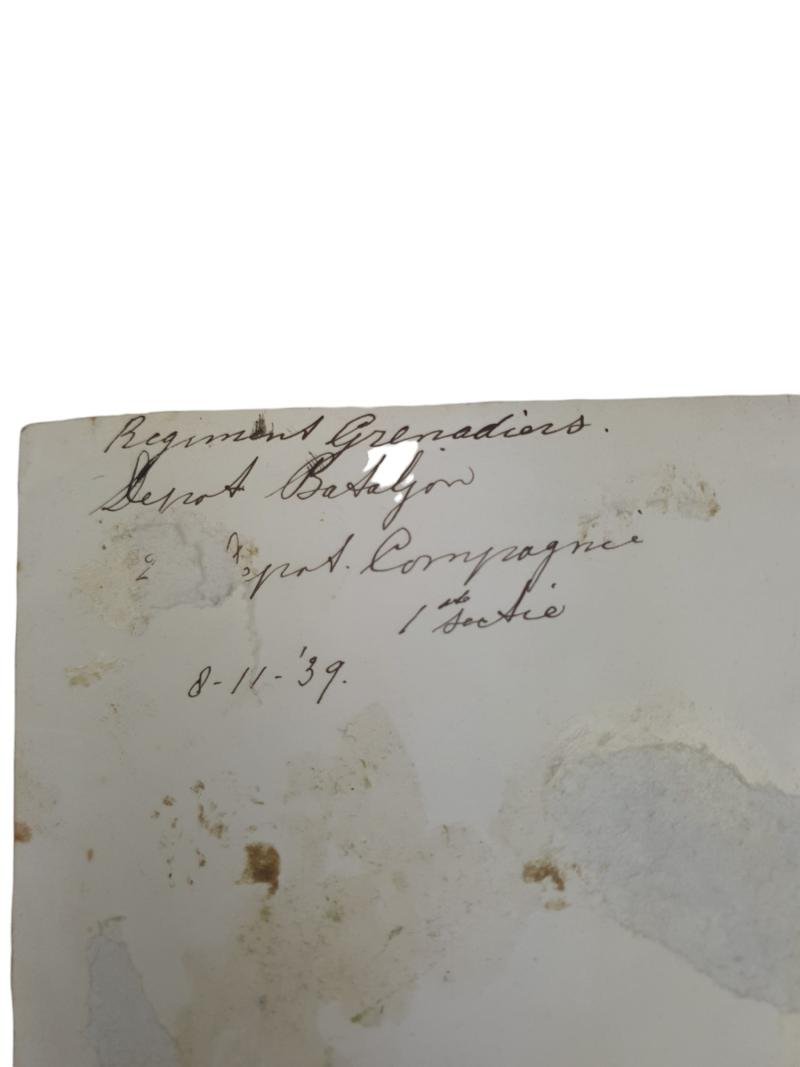 Regiment Grenadiers.
Depot Bataljon
2 pot. Compagnie
1ste Sectie
8-11-'39.